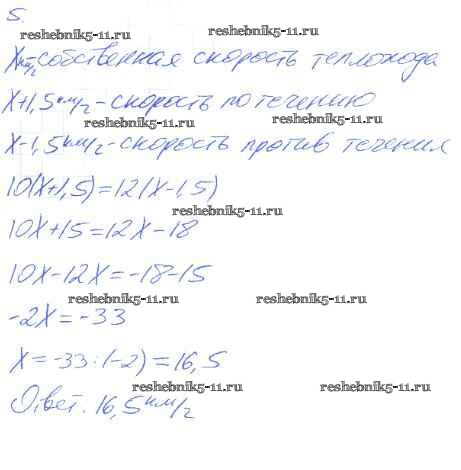 5.
reshebnik5-11.ru
X км/ч - собственная скорость теплохода
reshebnik5-11.ru
X+1,5 км/ч - скорость по течению
reshebnik5-11.ru
X-1,5 км/ч - скорость против течения
reshebnik5-11.ru
10(X+1,5)=12(X-1,5)
reshebnik5-11.ru
10X+15=12X-18
10X-12X=-18-15
reshebnik5-11.ru reshebnik5-11.ru
-2X=-33
X=-33:(-2)=16,5
reshebnik5-11.ru
Ответ: 16,5 км/ч